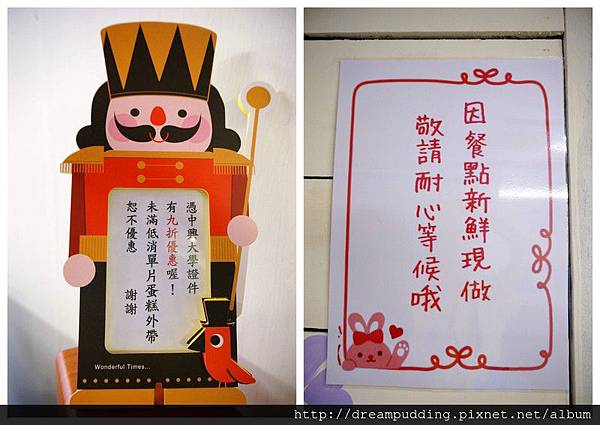 憑中興大學證件
有九折優惠喔！
未滿低消單片蛋糕外帶
恕不優惠　謝謝
Wonderful Times...
因餐點新鮮現做
敬請耐心等候哦
http://dreampudding.pixnet.net/album